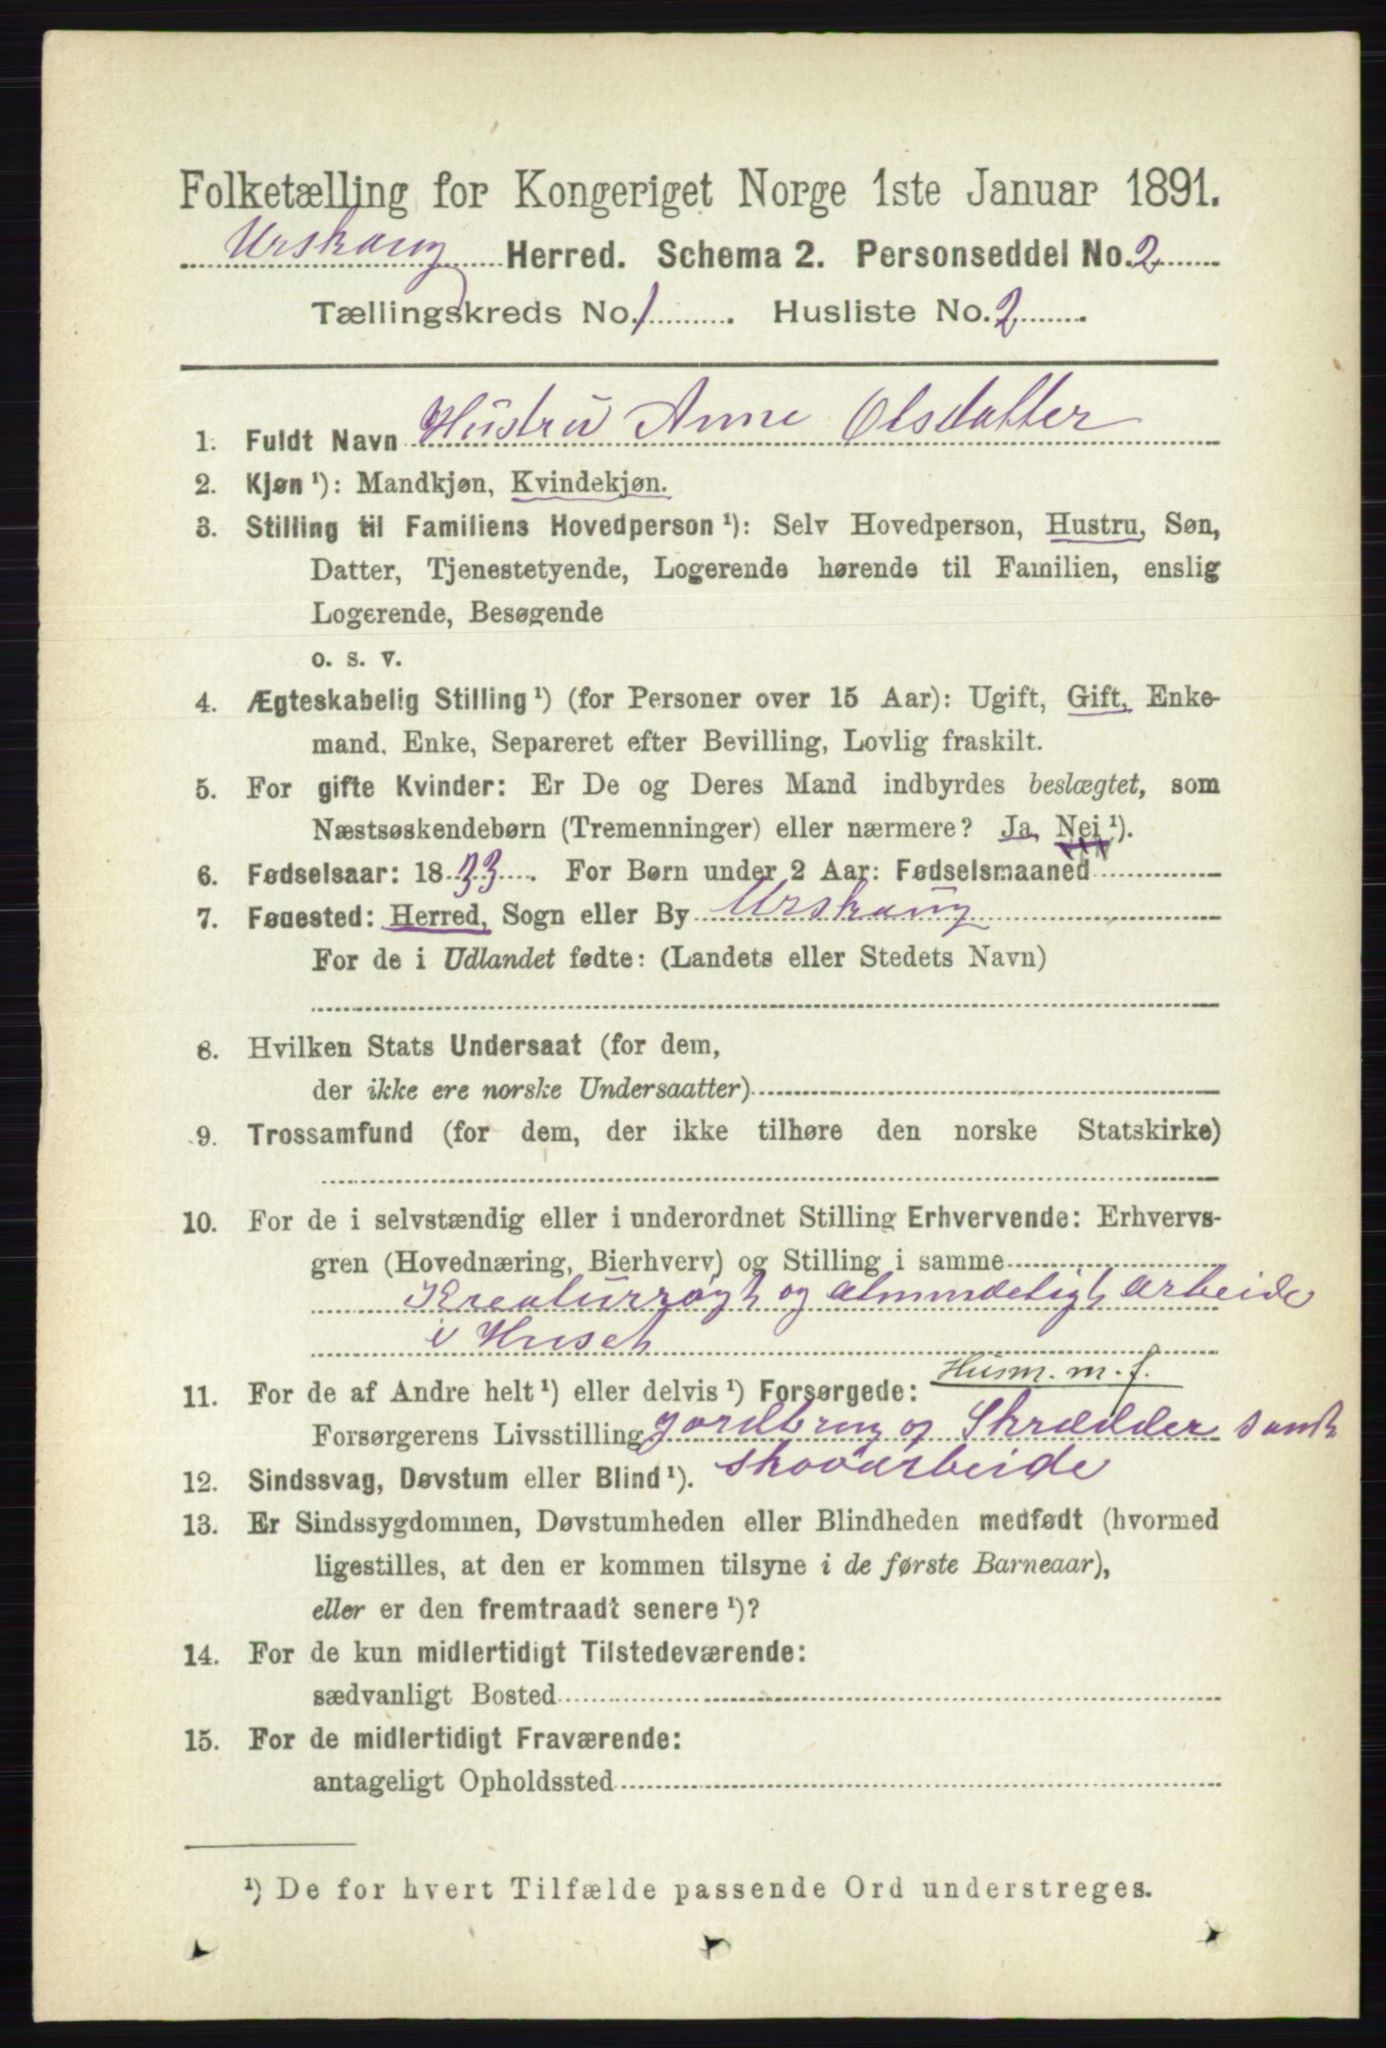 Folketælling for Kongeriget Norge 1ste Januar 1891.
Urskoug Herred. Schema 2. Personseddel No. 2
Tællingskreds No. 1. Husliste No. 2.
1. Fuldt Navn Hustru Anne Olsdatter
2. Kjøn ¹): Mandkjøn, Kvindekjøn.
3. Stilling til Familiens Hovedperson ¹): Selv Hovedperson, Hustru, Søn,
Datter, Tjenestetyende, Logerende hørende til Familien, enslig
Logerende, Besøgende
o. s. v.
4. Ægteskabelig Stilling ¹) (for Personer over 15 Aar): Ugift, Gift, Enke-
mand, Enke, Separeret efter Bevilling, Lovlig fraskilt.
5. For gifte Kvinder: Er De og Deres Mand indbyrdes beslægtet, som
Næstsøskendebørn (Tremenninger) eller nærmere? Ja, Nei ¹).
6. Fødselsaar: 1833. For Børn under 2 Aar: Fødselsmaaned
7. Føuested: Herred, Sogn eller By Urskoug
For de i Udlandet fødte: (Landets eller Stedets Navn)
8. Hvilken Stats Undersaat (for dem,
der ikke ere norske Undersaatter)
9. Trossamfund (for dem, der ikke tilhøre den norske Statskirke)
10. For de i selvstændig eller i underordnet Stilling Erhvervende: Erhvervs-
gren (Hovednæring, Bierhverv) og Stilling i samme
Kreaturrøgt og almindeligt arbeide
i Huset
Husm. m. f.
11. For de af Andre helt ¹) eller delvis ¹) Forsørgede:
Forsørgerens Livsstilling jordbrug og Skrædder samt
skovarbeide
12. Sindssvag, Døvstum eller Blind ¹).
13. Er Sindssygdommen, Døvstumheden eller Blindheden medfødt (hvormed
ligestilles, at den er kommen tilsyne i de første Barneaar),
eller er den fremtraadt senere ¹)?
14. For de kun midlertidigt Tilstedeværende:
sædvanligt Bosted
15. For de midlertidigt Fraværende:
antageligt Opholdssted
¹) De for hvert Tilfælde passende Ord understreges.